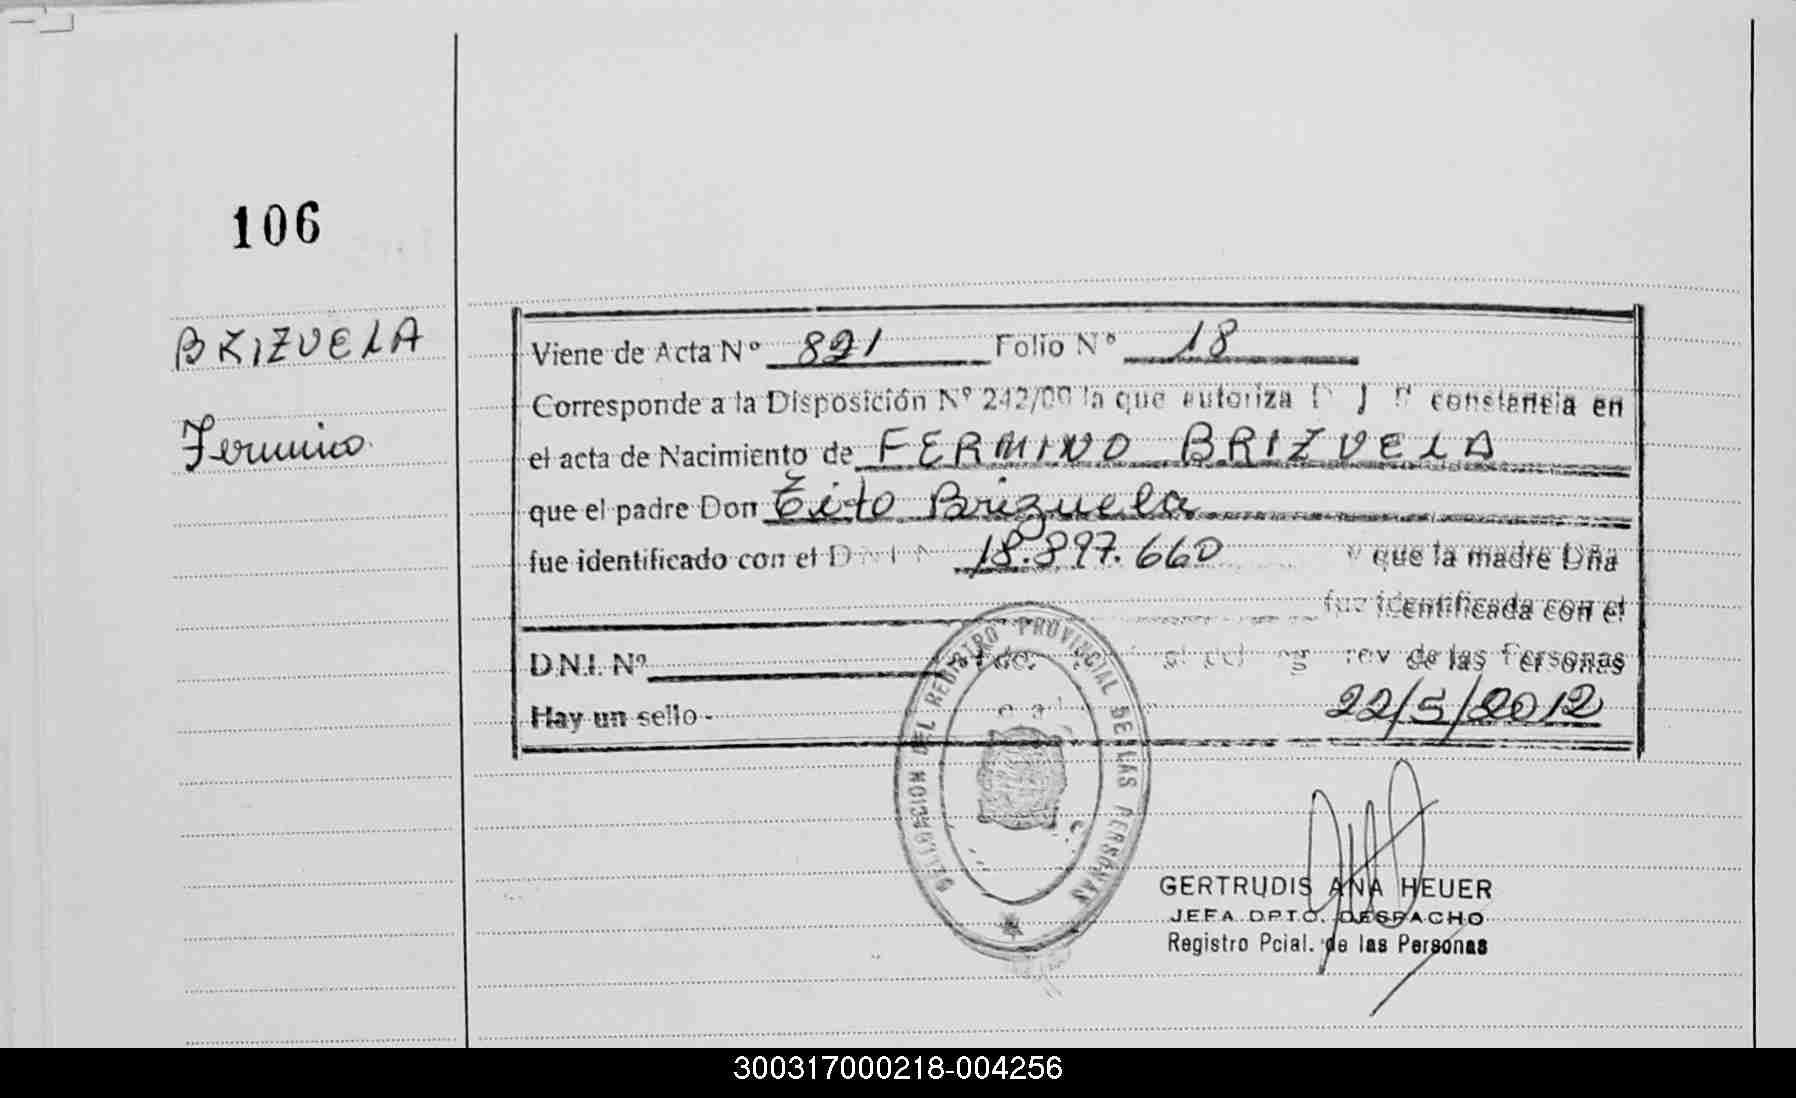 106
BRIZUELA
Fermino
Viene de Acta Nº 891 Folio Nº 18
Corresponde a la Disposición Nº 242/00 la que autoriza constancia en
el acta de Nacimiento de FERMINO BRIZUELA
que el padre Don Tito Brizuela
fue identificado con el D.N.I. N 18.897.660 y que la madre Dña
fue identificada con el
D.N.I. Nº de las Personas
Hay un sello - 22/5/2012
DELEGACION DEL REGISTRO PROVINCIAL DE LAS PERSONAS
GERTRUDIS ANA HEUER
JEFA DPTO. DESPACHO
Registro Pcial. de las Personas
300317000218-004256